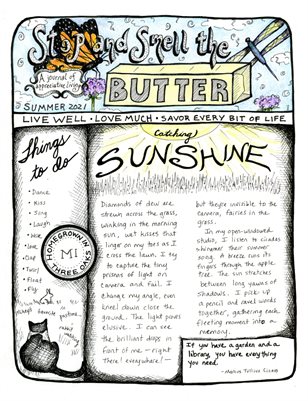 Stop and Smell the
BUTTER
A journal of
appreciative living
SUMMER 2021
LIVE WELL • LOVE MUCH • SAVOR EVERY BIT OF LIFE
Things
to do
• Dance
• Kiss
• Sing
• Laugh
• Hope
• Love
• Clap
• Twirl
• Float
• Fly
HOMEGROWN IN
MI
THREE OAKS
Catching
SUNSHINE
Diamonds of dew are
strewn across the grass,
winking in the morning
sun, wet kisses that
linger on my toes as I
cross the lawn. I try
to capture the tiny
prisms of light on
camera and fail. I
change my angle, even
kneel down close the
ground. The light paws
elusive. I can see
the brilliant drops in
front of me — right
there! everywhere! —
but they're invisible to the
camera, fairies in the
grass.
In my open-windowed
studio, I listen to cicadas
shimmer their summer
song. A breeze runs its
fingers through the apple
tree. The sun stretches
between long yawns of
shadows. I pick up
a pencil and corral words
together, gathering each
fleeting moment into a
memory.
If you have a garden and a
library, you have everything
you need.
—Marcus Tullius Cicero